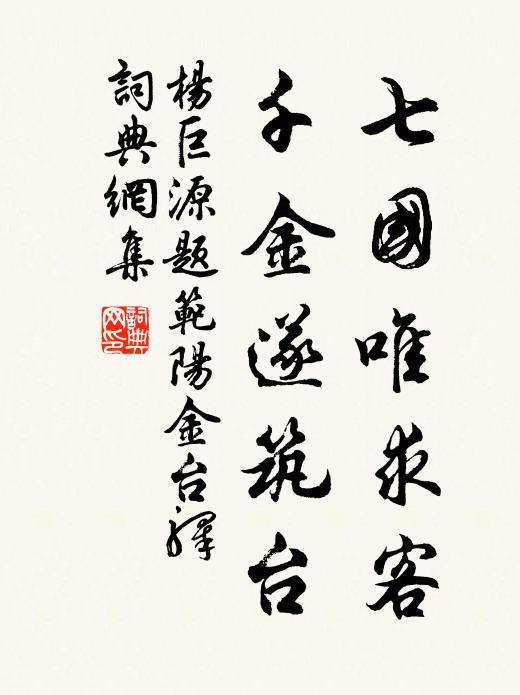 七國唯求客
千金遂筑台
楊巨源題範陽金台驛
詞典網集
詞典网印